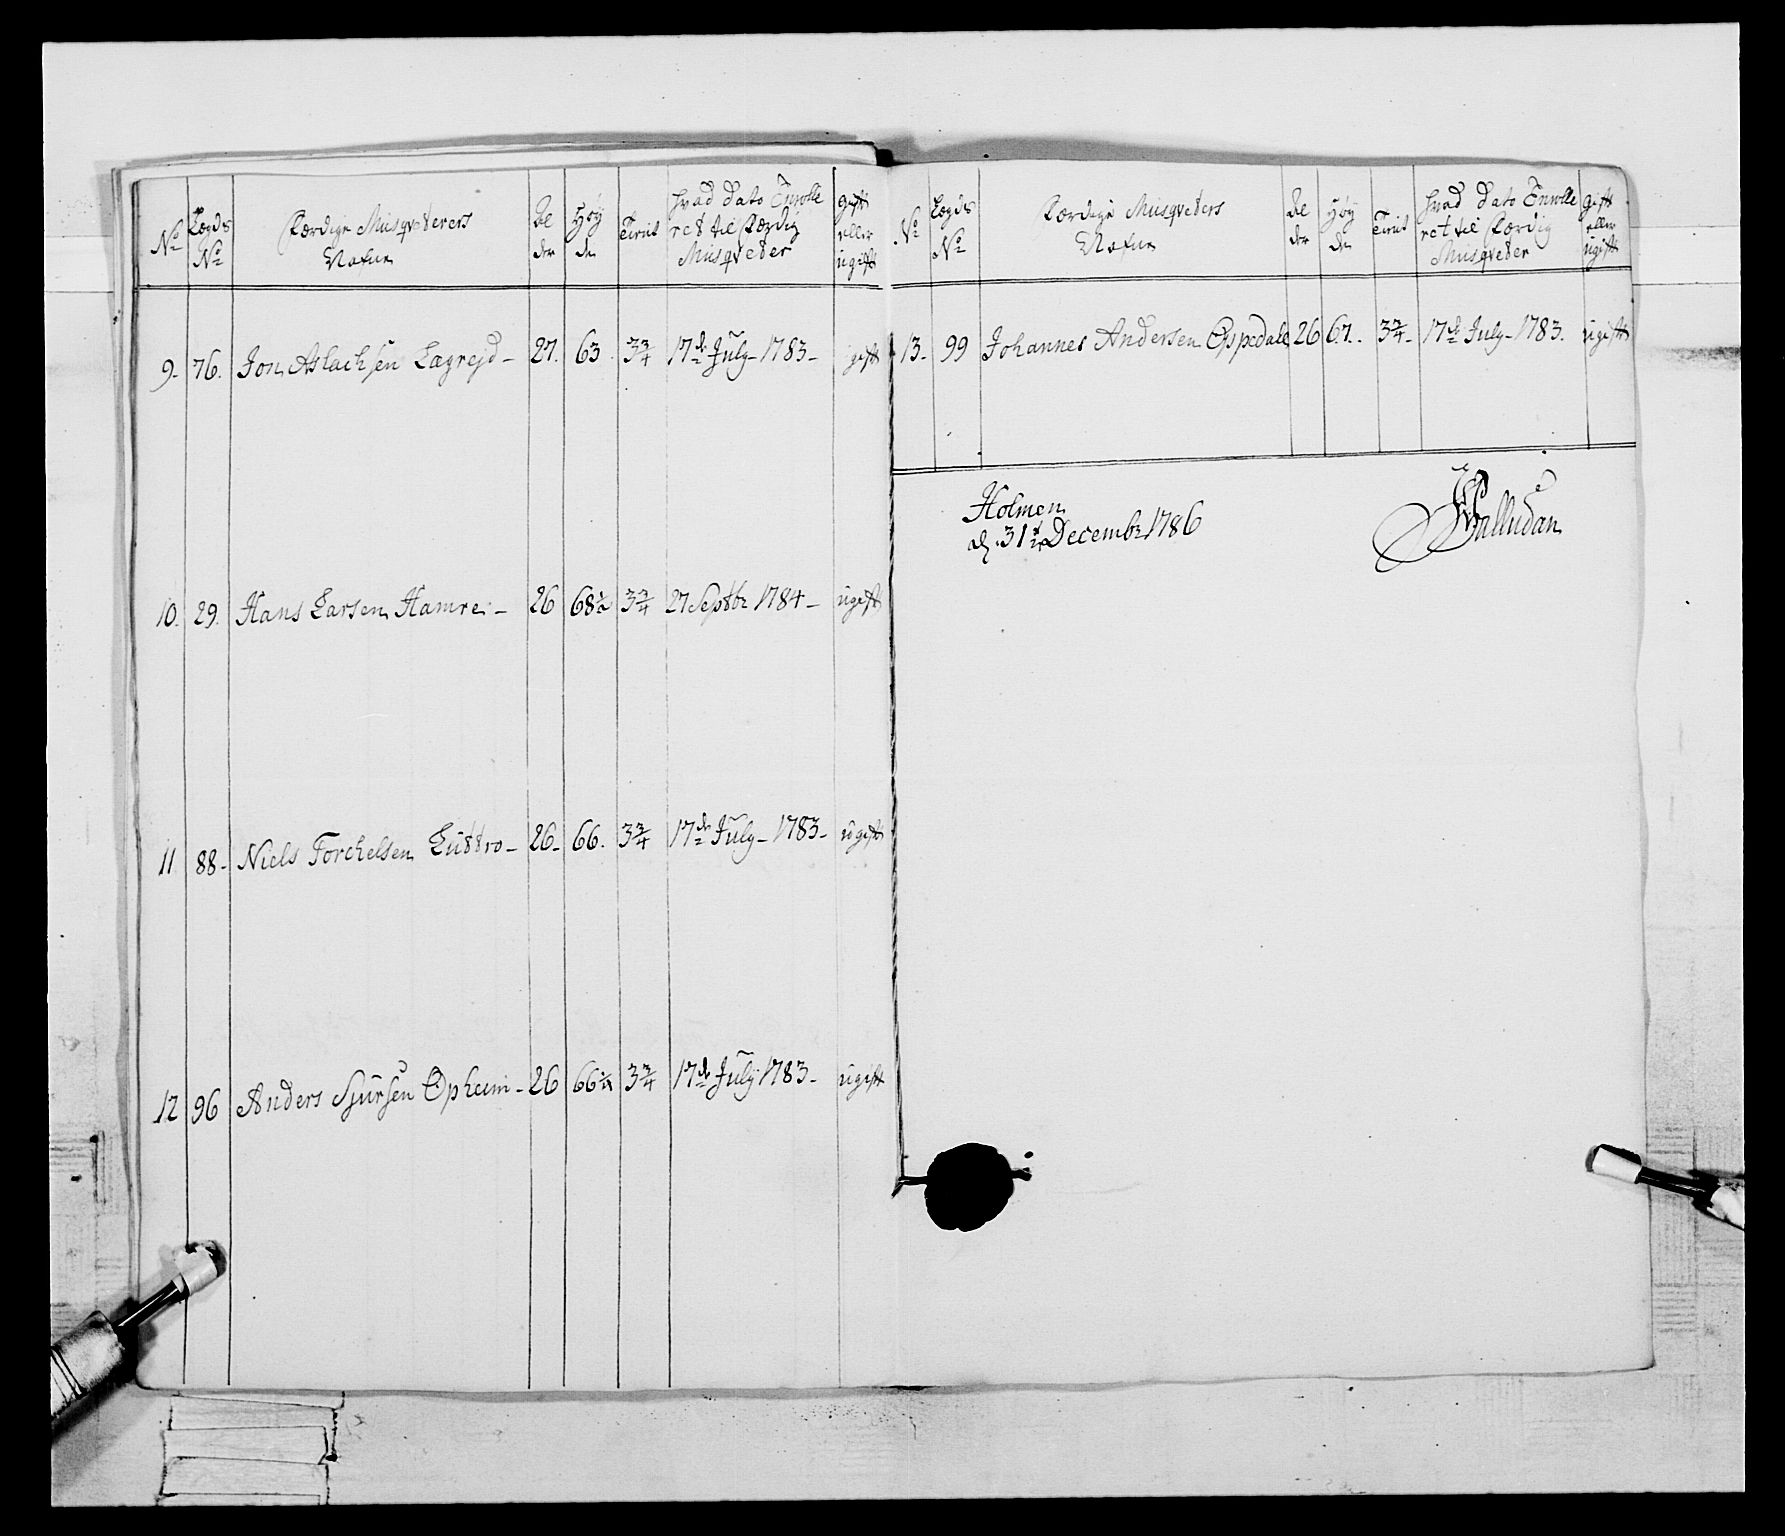 No
Lægds No
Færdige Musqveterers Nafne
Al der
Høy de
Tient
Hvad Dato Enrolle ret til Færdig Musqveter
gift eller ugift
9. 76. Jon Aslachsen Lægrejd 27. 63. 3 3/4 17de July 1783 gift
10. 29. Hans Larsen Hamre 26 68 1/2 3 3/4 27 Septbr 1784 ugift
11 88 Niels Torchelsen Luttro 26 66. 3 3/4 17de July 1783 ugift
12 96 Anders Sjursen Opheim 26 66 1/2 3 3/4 17de July 1783 ugift
No
Lægds No
Færdige Musqveters Nafne
Al der
Høy de
Tient
Hvad Dato Enrolle ret til Færdig Musqveter
Gift eller ugift
13. 99 Johannes Andersen Espedale 26 67. 3 3/4 17de July 1783. ugift
Holmen
d. 31te Decembr 1786
Palludan